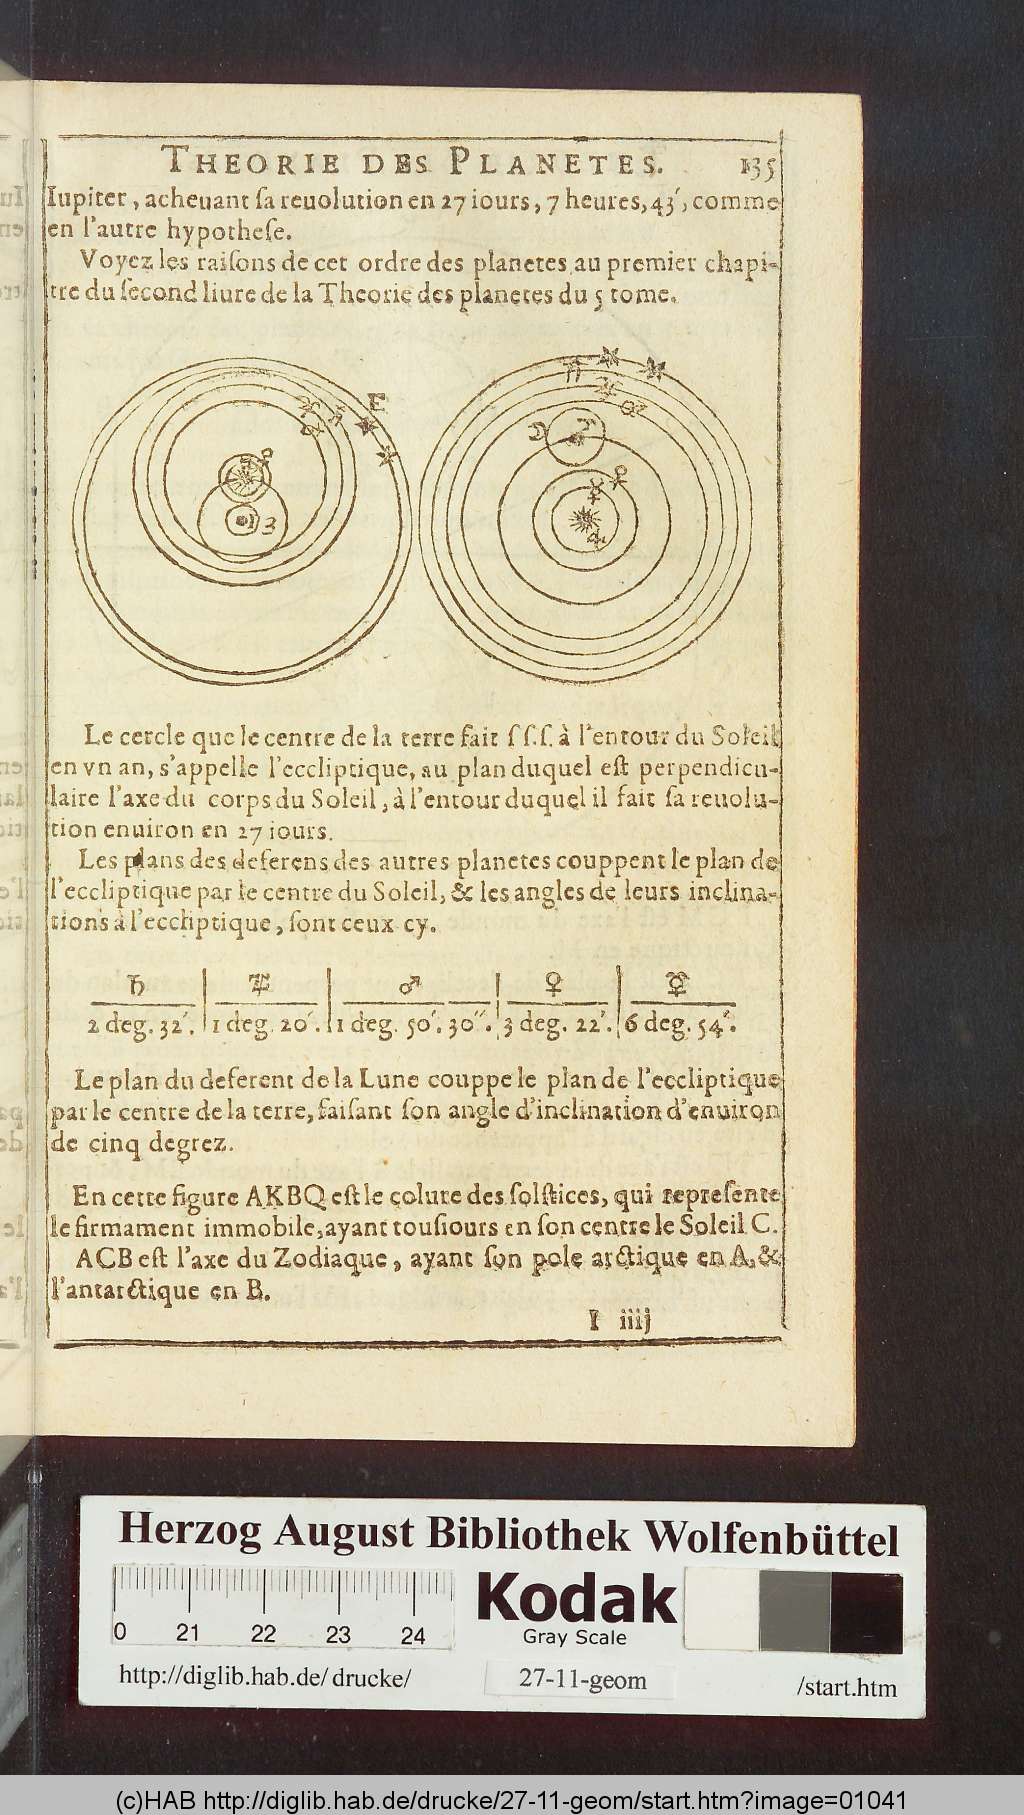 THEORIE DES PLANETES. 135
Iupiter, acheuant ſa reuolution en 27 iours, 7 heures, 43′, comme
en l'autre hypotheſe.
Voyez les raiſons de cet ordre des planetes au premier chapi-
tre du ſecond liure de la Theorie des planetes du 5 tome.
Le cercle que le centre de la terre fait ſ ſ.ſ. à l'entour du Soleil
en vn an, s'appelle l'eccliptique, au plan duquel eſt perpendicu-
laire l'axe du corps du Soleil, à l'entour duquel il fait ſa reuolu-
tion enuiron en 27 iours.
Les plans des deferens des autres planetes couppent le plan de
l'eccliptique par le centre du Soleil, & les angles de leurs inclina-
tions à l'eccliptique, ſont ceux cy.
♄ | ♃ | ♂ | ♀ | ☿
2 deg. 32′. | 1 deg. 20′. | 1 deg. 50′. 30″. | 3 deg. 22′. | 6 deg. 54′.
Le plan du deferent de la Lune couppe le plan de l'eccliptique
par le centre de la terre, faiſant ſon angle d'inclination d'enuiron
de cinq degrez.
En cette figure AKBQ eſt le colure des ſolſtices, qui repreſente
le firmament immobile, ayant touſiours en ſon centre le Soleil C.
ACB eſt l'axe du Zodiaque, ayant ſon pole arctique en A, &
l'antarctique en B.
I iiij
Herzog August Bibliothek Wolfenbüttel
0 21 22 23 24
Kodak
Gray Scale
http://diglib.hab.de/drucke/ 27-11-geom /start.htm
(c)HAB http://diglib.hab.de/drucke/27-11-geom/start.htm?image=01041